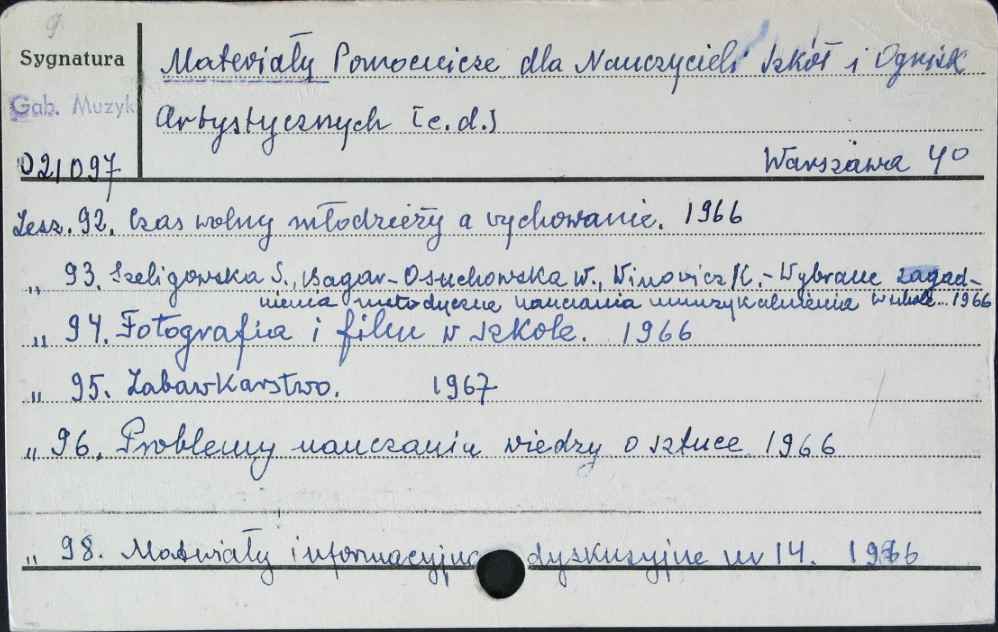 9
Sygnatura
Materiały Pomocnicze dla Nauczycieli Szkół i Ognisk
Gab. Muzyk
Artystycznych [c.d.]
021097
Warszawa 40
Zesz. 92. Czas wolny młodzieży a wychowanie. 1966
„ 93. Szeligowska S., Bagar-Osuchowska W., Winowicz K.,- Wybrane zagad-
nienia metodyczne nauczania umuzykalnienia w szkole. 1966
„ 94. Fotografia i film w szkole. 1966
„ 95. Zabawkarstwo. 1967
„ 96. Problemy nauczania wiedzy o sztuce 1966
„ 98. Materiały informacyjno dyskusyjne nr 14. 1966